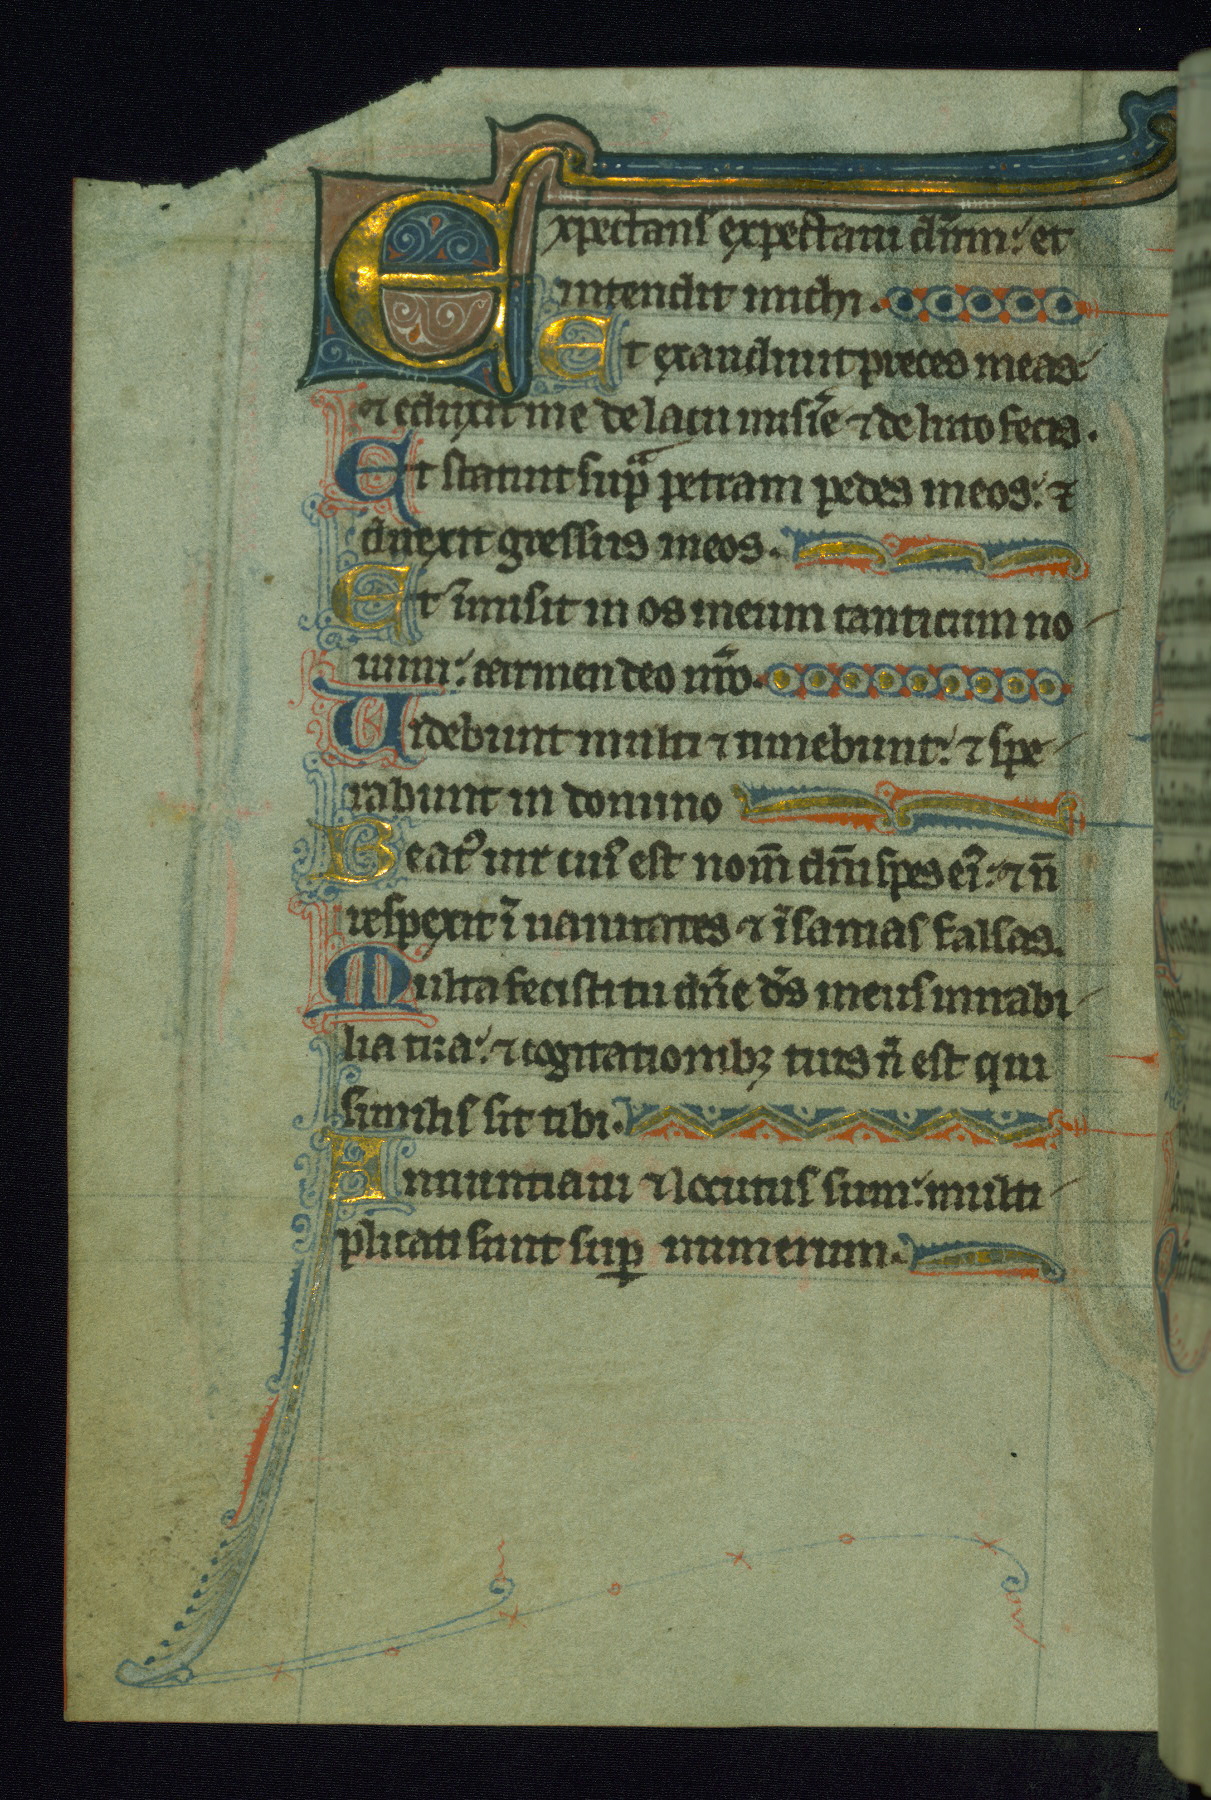 Expectans expectaui dn̄m: et
intendit michi.
Et exaudiuit preces meas:
⁊ eduxit me de lacu misīe ⁊ de luto fecis.
Et statuit sup̄ petram pedes meos: ⁊
direxit gressus meos.
Et īmisit in os meum canticum no
uum: carmen deo nr̄o.
Uidebunt multi ⁊ timebunt: ⁊ spe
rabunt in domino
Beat᾽ uir cui᾽ est nom̄ dn̄i spes ei᾽: ⁊ n̄
respexit ī uanitates ⁊ īsanias falsas.
Multa fecisti tu dn̄e ds̄ meus mirabi
lia tua: ⁊ cogitationibꝫ tuis n̄ est qui
similis sit tibi.
Annuntiaui ⁊ locutus sum: multi
plicati sunt suꝑ numerum.